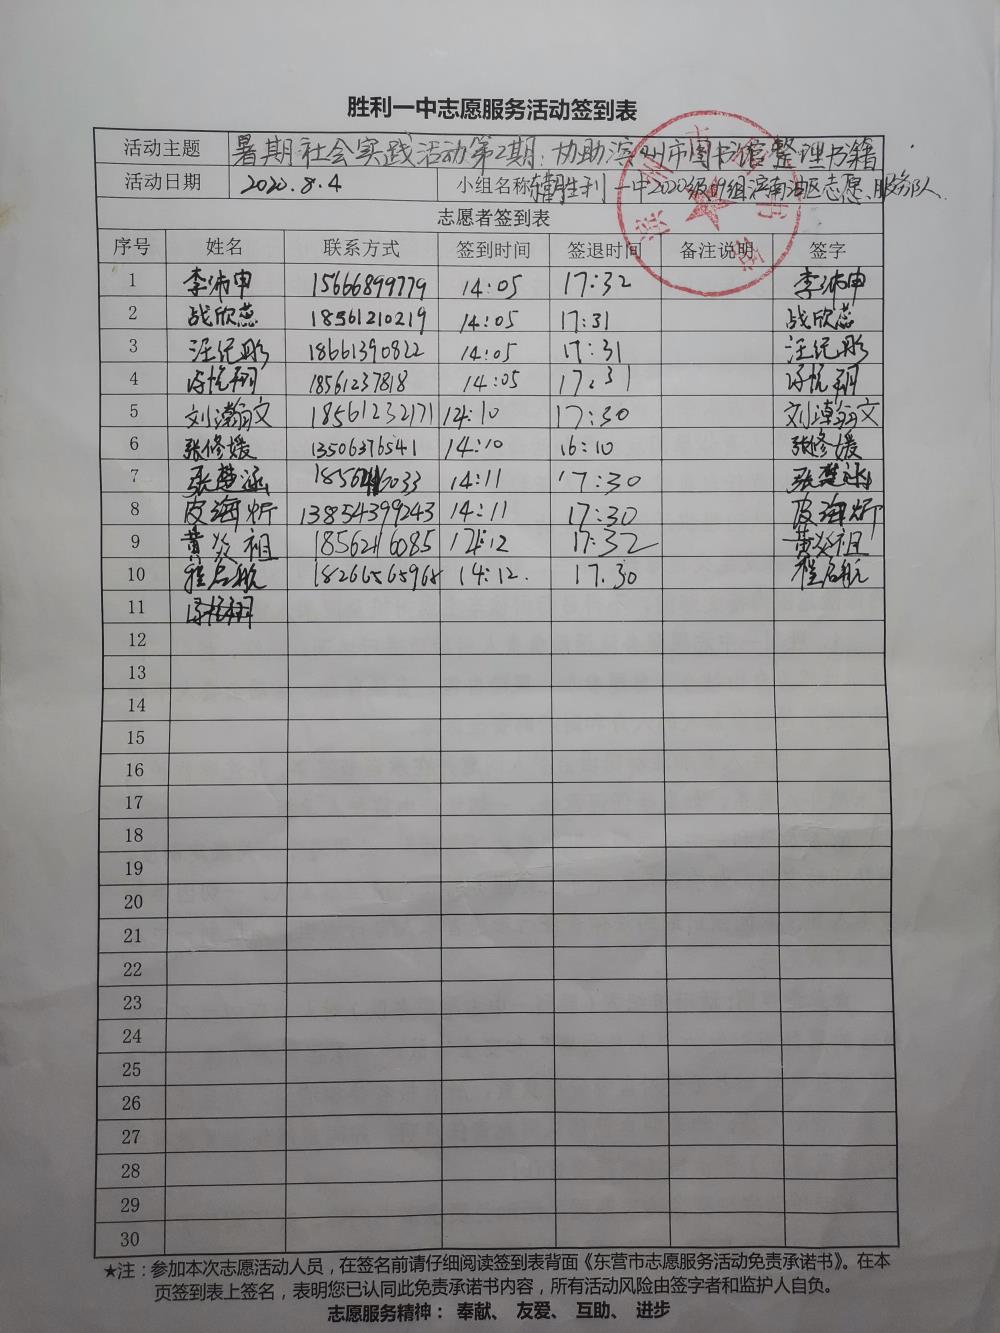 胜利一中志愿服务活动签到表
活动主题 暑期社会实践活动第2期：协助滨州市图书馆整理书籍
活动日期 2020.8.4 小组名称 胜利一中2020级 组滨南油区志愿服务队
志愿者签到表
序号 姓名 联系方式 签到时间 签退时间 备注说明 签字
1 李沛申 15666899779 14:05 17:32 李沛申
2 战欣蕊 18561210219 14:05 17:31 战欣蕊
3 汪纪彤 18661390822 14:05 17:31 汪纪彤
4 18561237818 14:05 17:31
5 刘瀚文 18561232171 14:10 17:30 刘瀚文
6 张修媛 13506376541 14:10 16:10 张修媛
7 张楚涵 14:11 17:30 张楚涵
8 皮海炘 13854399243 14:11 17:30 皮海炘
9 黄炎祖 18562116085 14:12 17:32 黄炎祖
10 程启航 18266565965 14:12. 17.30 程启航
11
12
13
14
15
16
17
18
19
20
21
22
23
24
25
26
27
28
29
30
★注：参加本次志愿活动人员，在签名前请仔细阅读签到表背面《东营市志愿服务活动免责承诺书》。在本
页签到表上签名，表明您已认同此免责承诺书内容，所有活动风险由签字者和监护人自负。
志愿服务精神：奉献、友爱、互助、进步